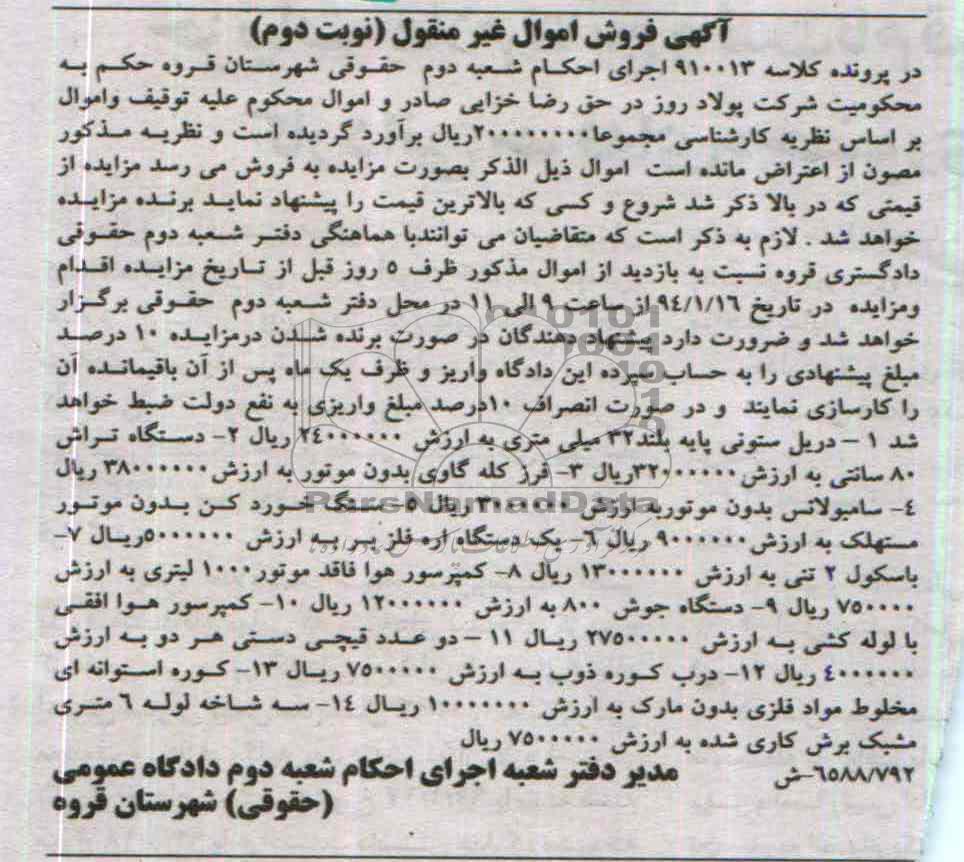 آگهی فروش اموال غیر منقول (نوبت دوم)
در پرونده کلاسه ۹۱۰۰۱۳ اجرای احکام شعبه دوم حقوقی شهرستان قروه حکم به
محکومیت شرکت پولاد روز در حق رضا خزایی صادر و اموال محکوم علیه توقیف واموال
بر اساس نظریه کارشناسی مجموعا۲۰۰۰۰۰۰۰۰۰ریال برآورد گردیده است و نظریه مذکور
مصون از اعتراض مانده است اموال ذیل الذکر بصورت مزایده به فروش می رسد مزایده از
قیمتی که در بالا ذکر شد شروع و کسی که بالاترین قیمت را پیشنهاد نماید برنده مزایده
خواهد شد . لازم به ذکر است که متقاضیان می توانندبا هماهنگی دفتر شعبه دوم حقوقی
دادگستری قروه نسبت به بازدید از اموال مذکور ظرف ۵ روز قبل از تاریخ مزایده اقدام
ومزایده در تاریخ ۹۴/۱/۱۶ از ساعت ۹ الی ۱۱ در محل دفتر شعبه دوم حقوقی برگزار
خواهد شد و ضرورت دارد پیشنهاد دهندگان در صورت برنده شدن درمزایده ۱۰ درصد
مبلغ پیشنهادی را به حساب سپرده این دادگاه واریز و ظرف یک ماه پس از آن باقیمانده آن
را کارسازی نمایند و در صورت انصراف ۱۰درصد مبلغ واریزی به نفع دولت ضبط خواهد
شد ۱ – دریل ستونی پایه بلند۳۲ میلی متری به ارزش ۲۴۰۰۰۰۰۰ ریال ۲- دستگاه تراش
۸۰ سانتی به ارزش۳۲۰۰۰۰۰۰ریال ۳- فرز کله گاوی بدون موتور به ارزش۳۸۰۰۰۰۰۰ ریال
۴- سامبولانس بدون موتوربه ارزش ریال ۵- سنگ خورد کن بدون موتور
مستهلک به ارزش۹۰۰۰۰۰۰ ریال ۶- یک دستگاه اره فلز بر به ارزش ۵۰۰۰۰۰۰ریال ۷-
باسکول ۲ تنی به ارزش ۱۳۰۰۰۰۰۰ ریال ۸- کمپرسور هوا فاقد موتور۱۰۰۰ لیتری به ارزش
۷۵۰۰۰۰ ریال ۹- دستگاه جوش ۸۰۰ به ارزش ۱۲۰۰۰۰۰۰ ریال ۱۰- کمپرسور هوا افقی
با لوله کشی به ارزش ۲۷۵۰۰۰۰۰ ریال ۱۱ – دو عدد قیچی دستی هر دو به ارزش
۴۰۰۰۰۰۰ ریال ۱۲- درب کوره ذوب به ارزش ۷۵۰۰۰۰۰ ریال ۱۳- کوره استوانه ای
مخلوط مواد فلزی بدون مارک به ارزش ۱۰۰۰۰۰۰۰ ریال ۱۴- سه شاخه لوله ۶ متری
مشبک برش کاری شده به ارزش ۷۵۰۰۰۰۰ ریال
۶۵۸۸/۷۹۲-ش مدیر دفتر شعبه اجرای احکام شعبه دوم دادگاه عمومی
(حقوقی) شهرستان قروه
ParsNamadData